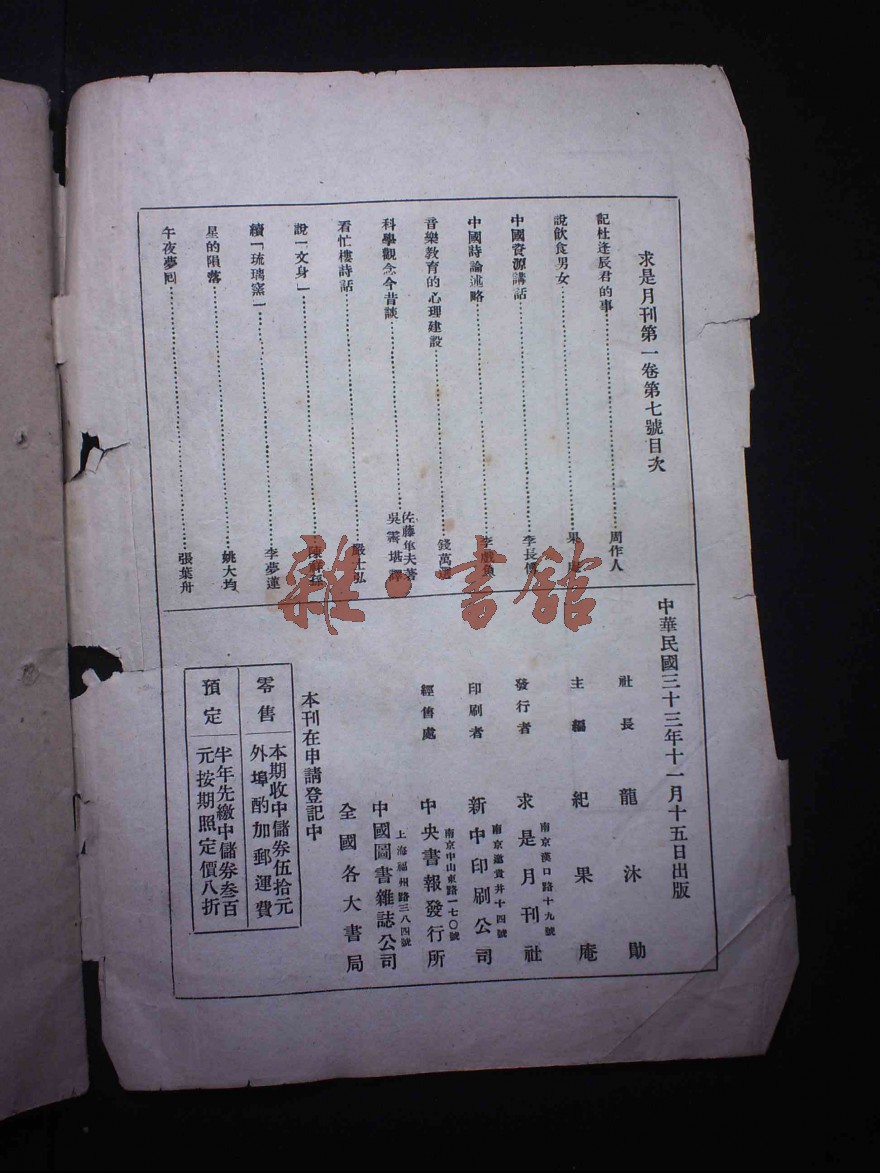 求是月刊第一卷第七號目次
記杜逢辰君的事……周作人
說飲食男女……果庵
中國資源講話……李長傅
中國詩論述略……李戲魚
音樂教育的心理建設……錢萬選
科學觀念今昔談……佐藤隼夫著
吳霱堪譯
看忙樓詩話……嚴士弘
說「文身」……陳嘉孫
續「琉璃窰」……李夢蓮
星的隕落……姚大均
午夜夢囘……張葉舟
中華民國三十三年十一月十五日出版
社長 龍沐勛
主編 紀果庵
發行者 求是月刊社
南京漢口路十九號
印刷者 新中印刷公司
南京邀貴井十四號
經售處 中央書報發行所
南京中山東路一七〇號
中國圖書雜誌公司
上海福州路三八四號
全國各大書局
本刊在申請登記中
零售 本期收中儲券伍拾元
外埠酌加郵運費
預定 半年先繳中儲券叁百
元按期照定價八折
雜·書館